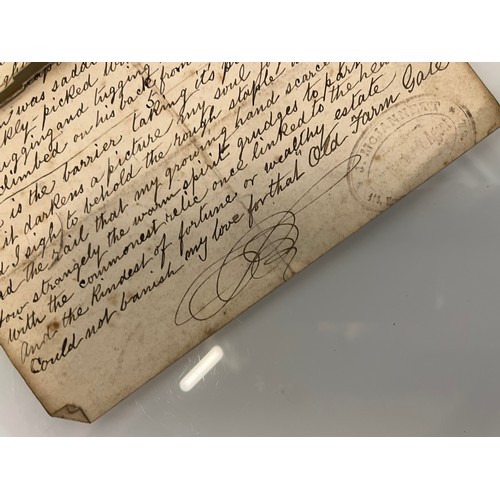 was saddl
kly-picked
ugging and tugging
climbed on his back from
5
is the barrier taking its
it darkens a picture my soul
d I sigh to behold the rough staple
d the rail that my growing hand scarce
How strangely the worm spirit grudges to part
With the commonest relic once linked to the he
And the kindest of fortune or wealthy estate
Could not banish any love for that Old Farm Gate